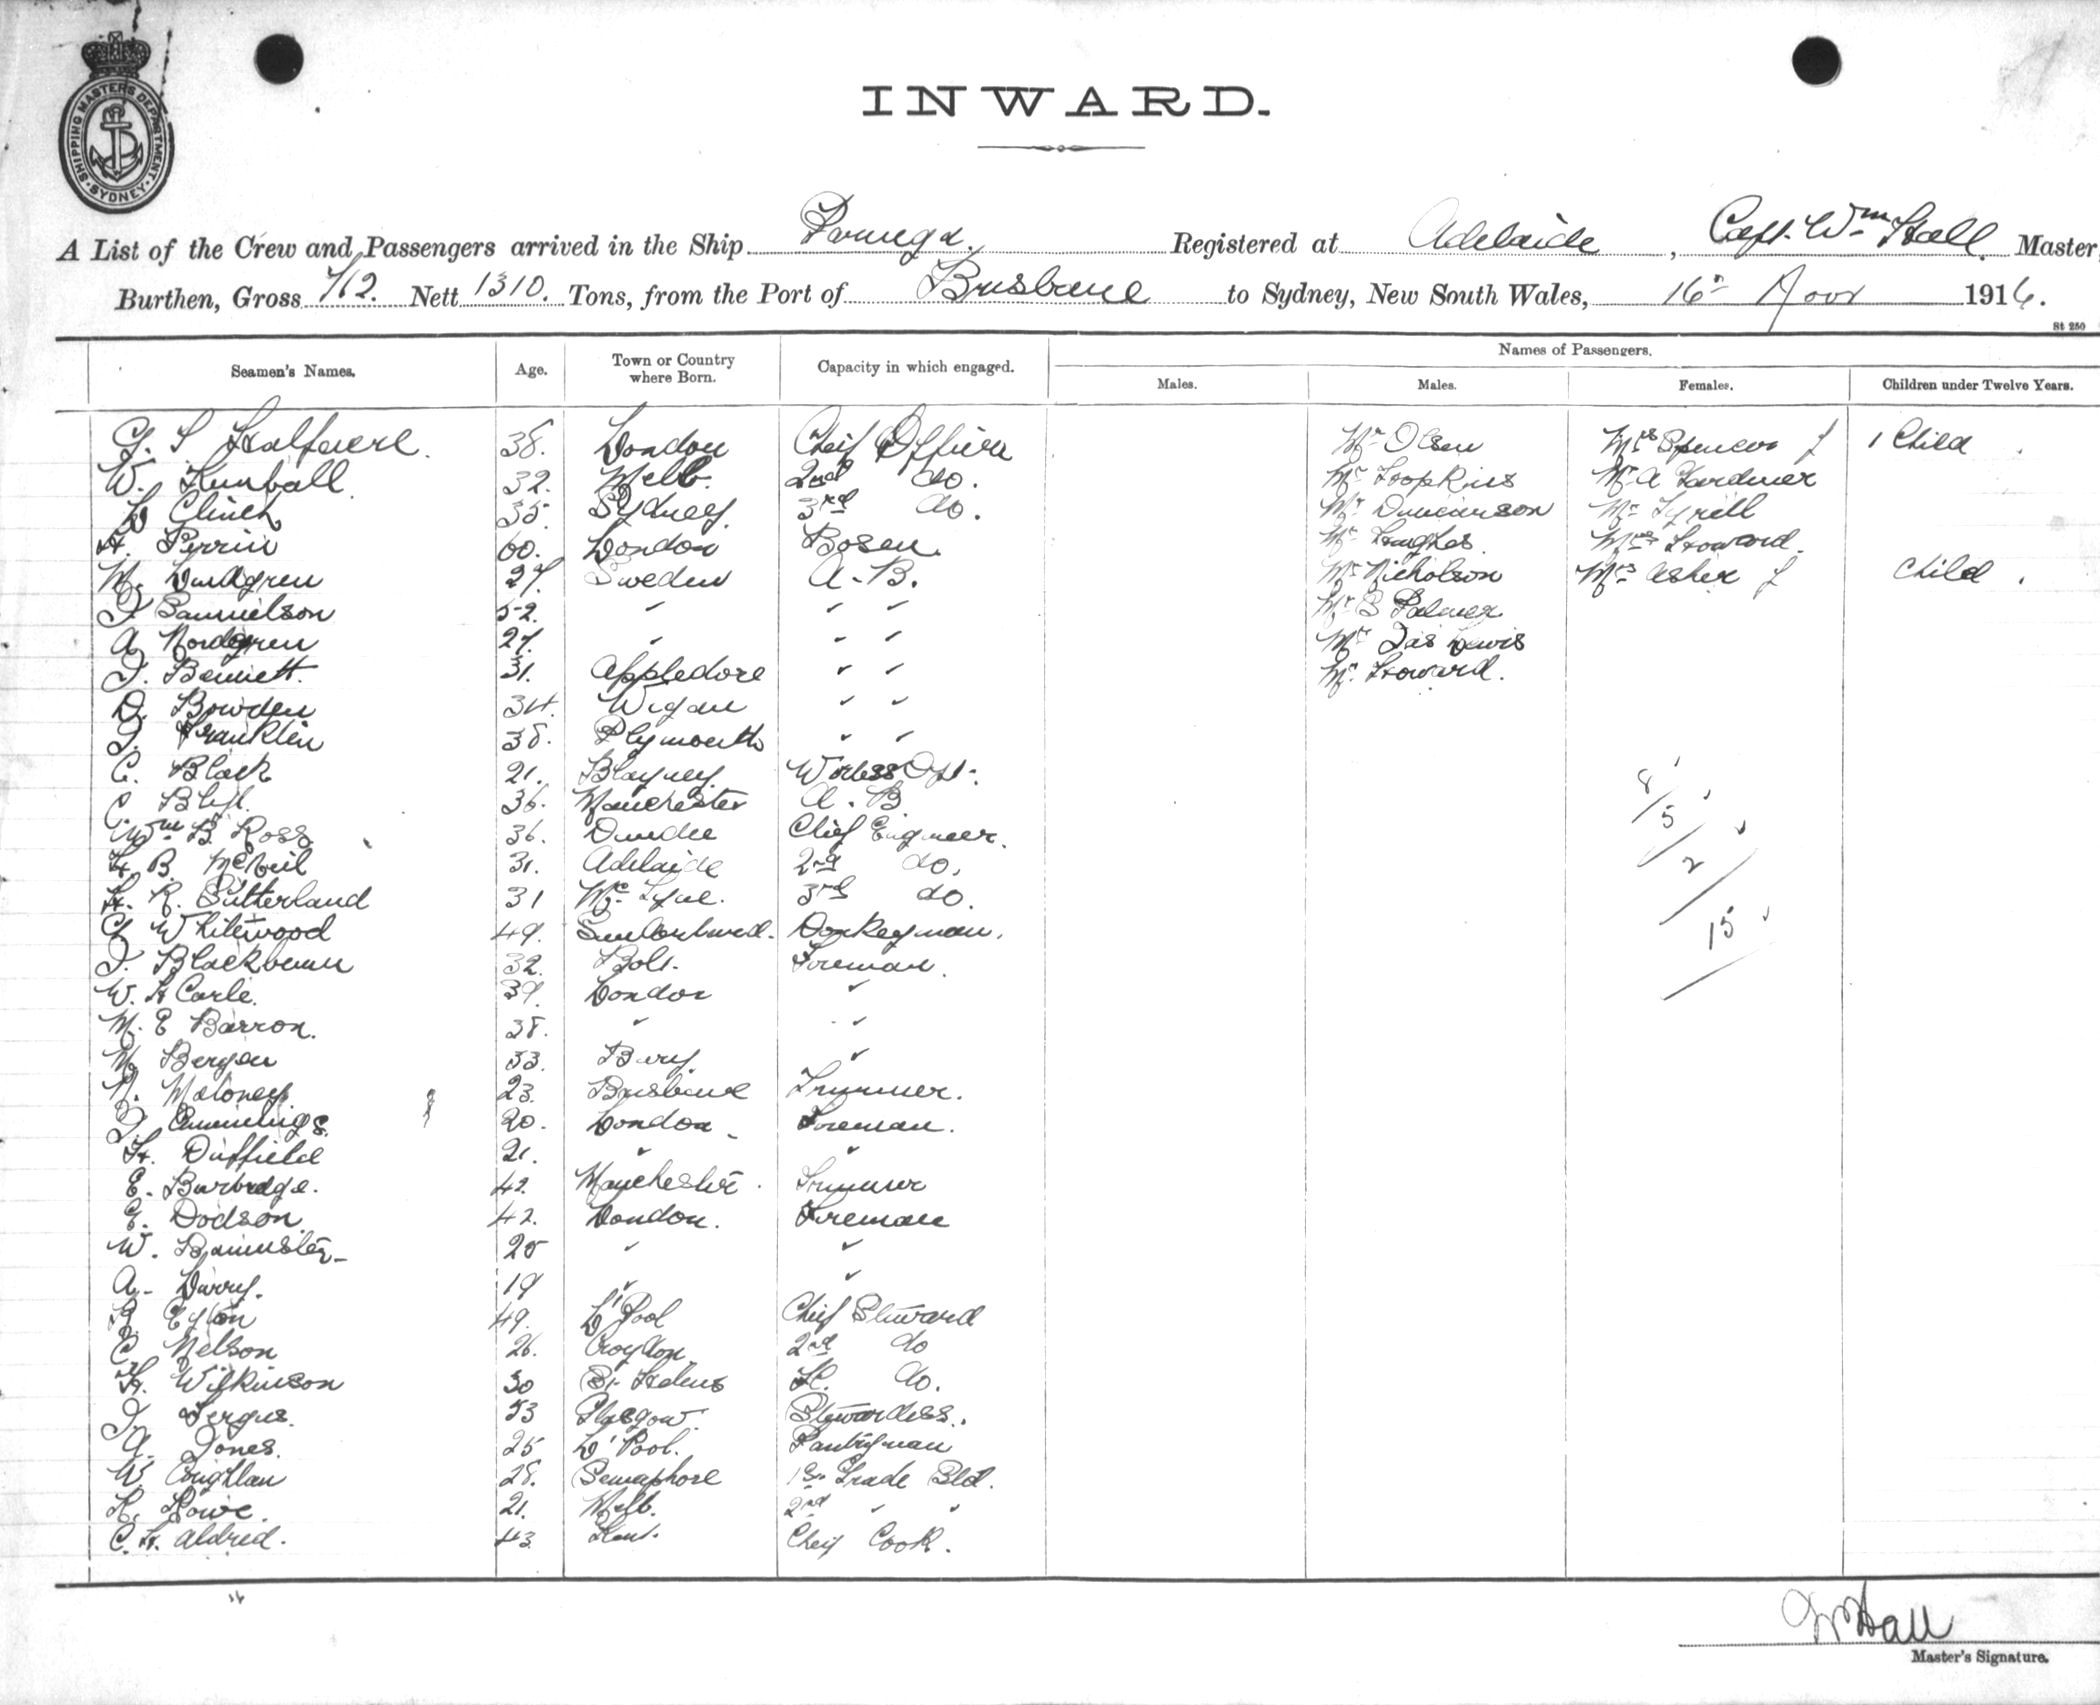 SHIPPING MASTERS DEPARTMENT. SYDNEY.
INWARD.
A List of the Crew and Passengers arrived in the Ship Registered at Adelaide, Capt. Wm Hall. Master,
Burthen, Gross Nett 1310. Tons, from the Port of Brisbane to Sydney, New South Wales, 16th 1916.
St 250
Seamen's Names. Age. Town or Country where Born. Capacity in which engaged. Names of Passengers.
Males. Males. Females. Children under Twelve Years.
38. London Cheif Officer Mr Olsen Mrs Spencer 1 Child
W. Kimball 32. Melb. 2nd do. Mr Hopkins A Gardiner
L Clinch 35. Sydney. 3rd do. Mr Tyrell
H. Perrin 60. London Bosen Mr Hughes Mrs Howard.
M. Lundgren 27. Sweden A.B. Mr Nicholson Mrs Asher Child
Samuelson 52. " " " Mr S Palmer
A Nordgren 27. " " " Mr Jas Lewis
J. Bennett. 31. Appledore " " Mr Howard.
D. Bowden 34. Wigan " "
J. Franklin 38. Plymouth " "
C. Black 21. Blayney Worless Opt.
C 36. Manchester A.B
Wm B. Ross 36. Dundee Chief Engineer.
H. B. McNeil 31. Adelaide 2nd do.
H. R. Sutherland 31 3rd do.
G Whitewood 49. Donkeyman.
J. Blackburn 32. Bolt. Fireman.
W. H Carle. 39. London "
M. E Barron. 38. " "
M Bergen 33. Bury "
Moloney 23. Brisbane Trimmer.
J. Cummings. 20. London Fireman.
H. Duffield 21. " "
E. Burbridge. 42. Manchester. Trimmer
E. Dodson 42. London. Fireman
W. Bannister 25 " "
A. 19 " "
49. L'Pool Cheif Steward
C Nelson 26. Croydon 2nd do
H. Wilkinson 30 St Helens do.
J. Fergus. 53 Glasgow Stewardess.
A. Jones. 25 L'Pool. Pantryman
W. Coughlan 28. Semaphore 1st Grade Std.
H. Howe. 21. Melb. 2nd " "
C. H. Aldred. 43 Kent. Cheif Cook.
8
5
2
15
Wm Hall
Master's Signature.